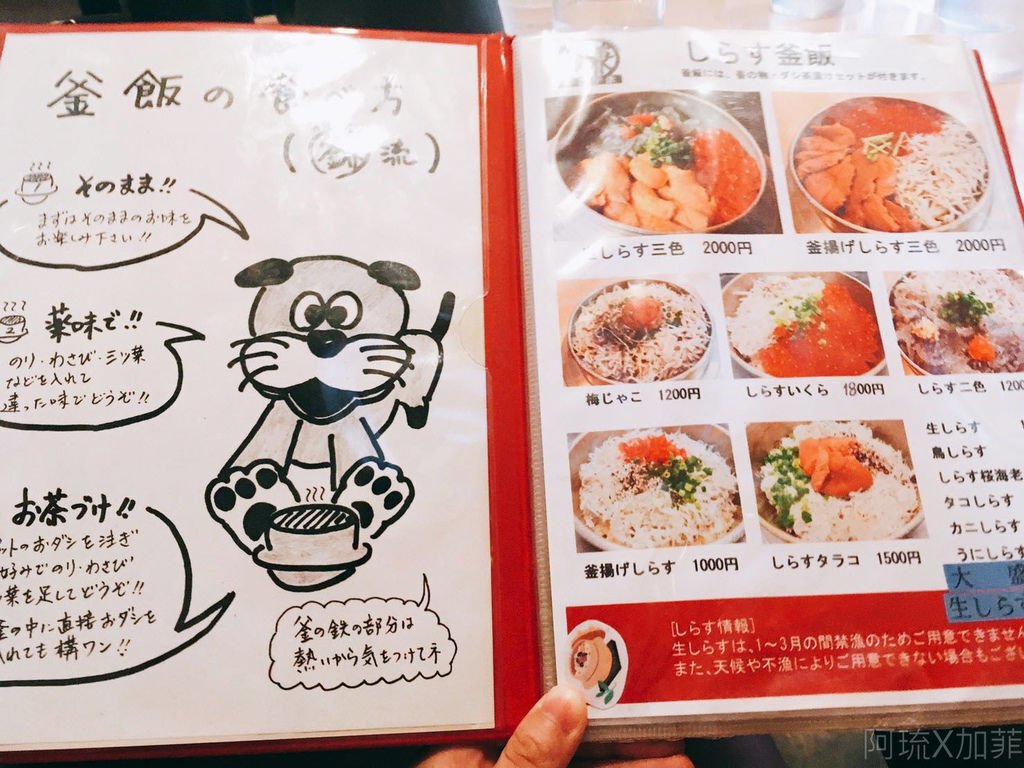 釜飯の食べ方
(釜流)
1
そのまま!!
まずはそのままのお味を
お楽しみ下さい!!
2
薬味で!!
のり・わさび・三ツ葉
などを入れて
違った味でどうぞ!!
お茶づけ!!
ットのおダシを注ぎ
好みでのり・わさび
葉を足してどうぞ!!
釜の中に直接おダシを
入れても構ワン!!
釜の鉄の部分は
熱いから気をつけて〒
しらす釜飯
釜飯には、香の物・ダシ茶漬けセットが付きます。
生しらす三色 2000円
釜揚げしらす三色 2000円
梅じゃこ 1200円
しらすいくら 1800円
しらす二色 120
釜揚げしらす 1000円
しらすタラコ 1500円
生しらす 1
鳥しらす
しらす桜海老
タコしらす
カニしらす
うにしらす
大盛
生しらす
[しらす情報]
生しらすは、1〜3月の間禁漁のためご用意できません
また、天候や不漁によりご用意できない場合もござい
阿琉X加菲